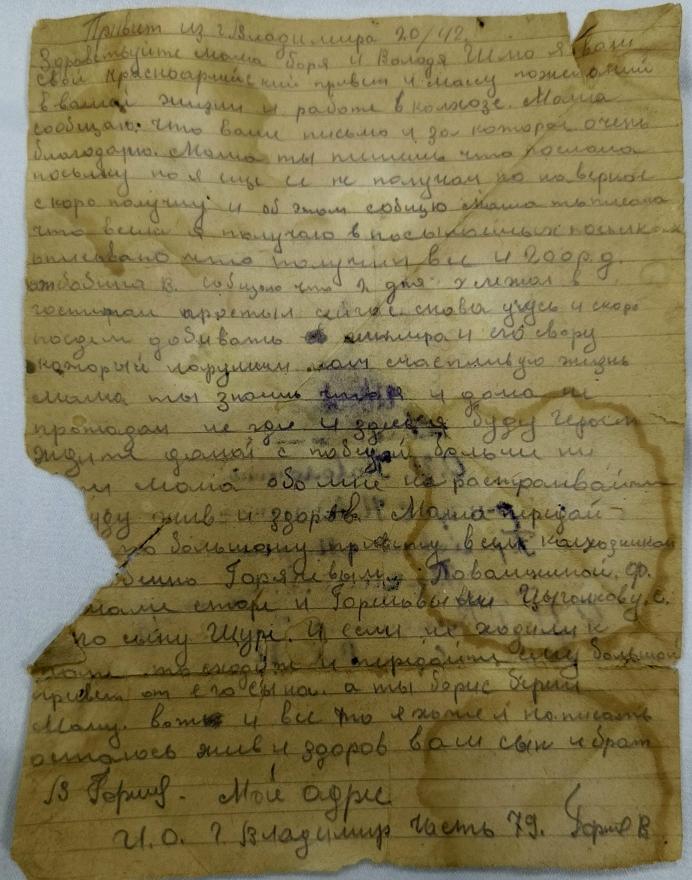 Привет из г. Владимира 20/42.
Здравствуйте мама боря и Володя Шлю я вам
свой красноармейский привет и массу пожеланий
в вашей жизни и работе в колхозе. Мама
сообщаю что ваше письмо я за которое очень
благодарю. Мама ты пишешь что послала
посылку но я еще ее не получал но наверное
скоро получу и об этом собщю мама ты писала
что всем я получаю в посылочных
описывано что получил все и 200 р. д.
В. сообщаю что 2 дня лежал в
госпитали простыл сейчас снова учусь и скоро
поедем добивать и его свору
который нарушил нам счастливую жизнь
мама ты знаешь что я и дома не
пропадал не где и здесь я буду героем
ждите домой с победой больше ни
мама обо мне не растраивай
уду жив и здоров. Мама передай
по большому привету всем колхозникам
бенно Горячевым, ф.
и Горшковым Цыганкову. с.
по сыну Шуре. И если не ходили к
то сходите и передайте ему большой
привет от его сына. а ты борис береги
Маму. вот и все что я хотел написать
остаюсь жив и здоров ваш сын и брат
В Мой адрес
И. О. г Владимир часть 79. В